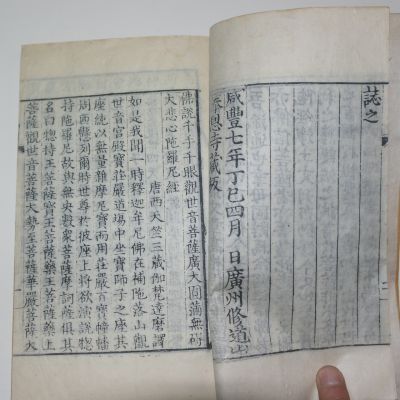 誌之
咸豐七年丁巳四月 日廣州修道山
奉恩寺藏板
佛說千手千眼觀世音菩薩廣大圓滿無礙
大悲心陀羅尼經
唐西天竺三藏伽梵達磨譯
如是我聞一時釋迦牟尼佛在補陀落山觀
世音宮殿寶莊嚴道場中坐寶師子之座其
座純以無量雜摩尼寶而用莊嚴百寶幢幡
周匝懸列爾時世尊於彼座上將欲演說惣
持陀羅尼故與無央數衆菩薩摩訶薩俱其
名曰惣持王菩薩寶王菩薩藥王菩薩藥上
菩薩觀世音菩薩大勢至菩薩華嚴菩薩大